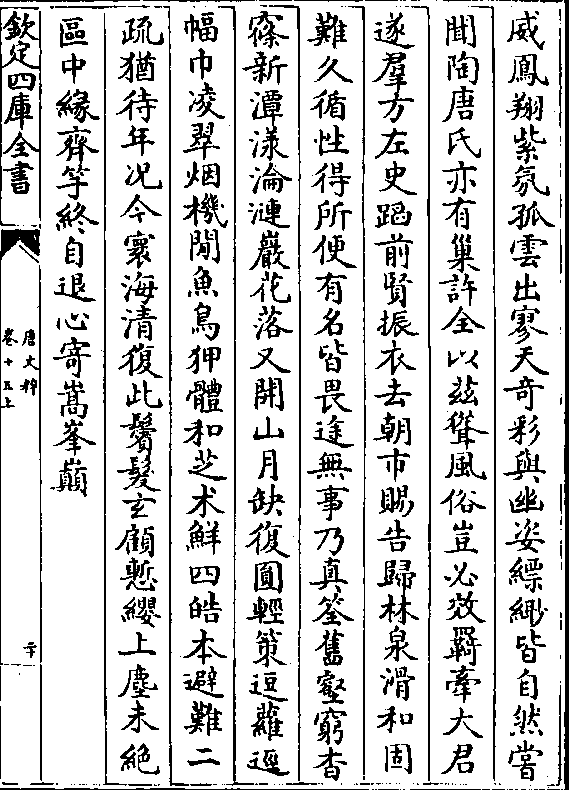 威鳳翔紫氛孤雲出寥天奇彩與幽姿縹緲皆自然嘗
聞陶唐氏亦有巢許全以兹聳風俗豈必效羇牽大君
遂羣方左史蹈前賢振衣去朝市賜告歸林泉滑和固
難久循性得所便有名皆畏途無事乃真筌舊壑窮杳
窱新潭漾淪漣巖花落又開山月缺復圓輕策逗蘿逕
幅巾凌翠烟機閒魚鳥狎體和芝术鮮四皓本避難二
疏猶待年况今寰海清復此鬢髮玄顧慙纓上塵未絶
區中緣齊竽終自退心寄嵩峯巔
欽定四庫全書
唐文粹
卷十五上
二十